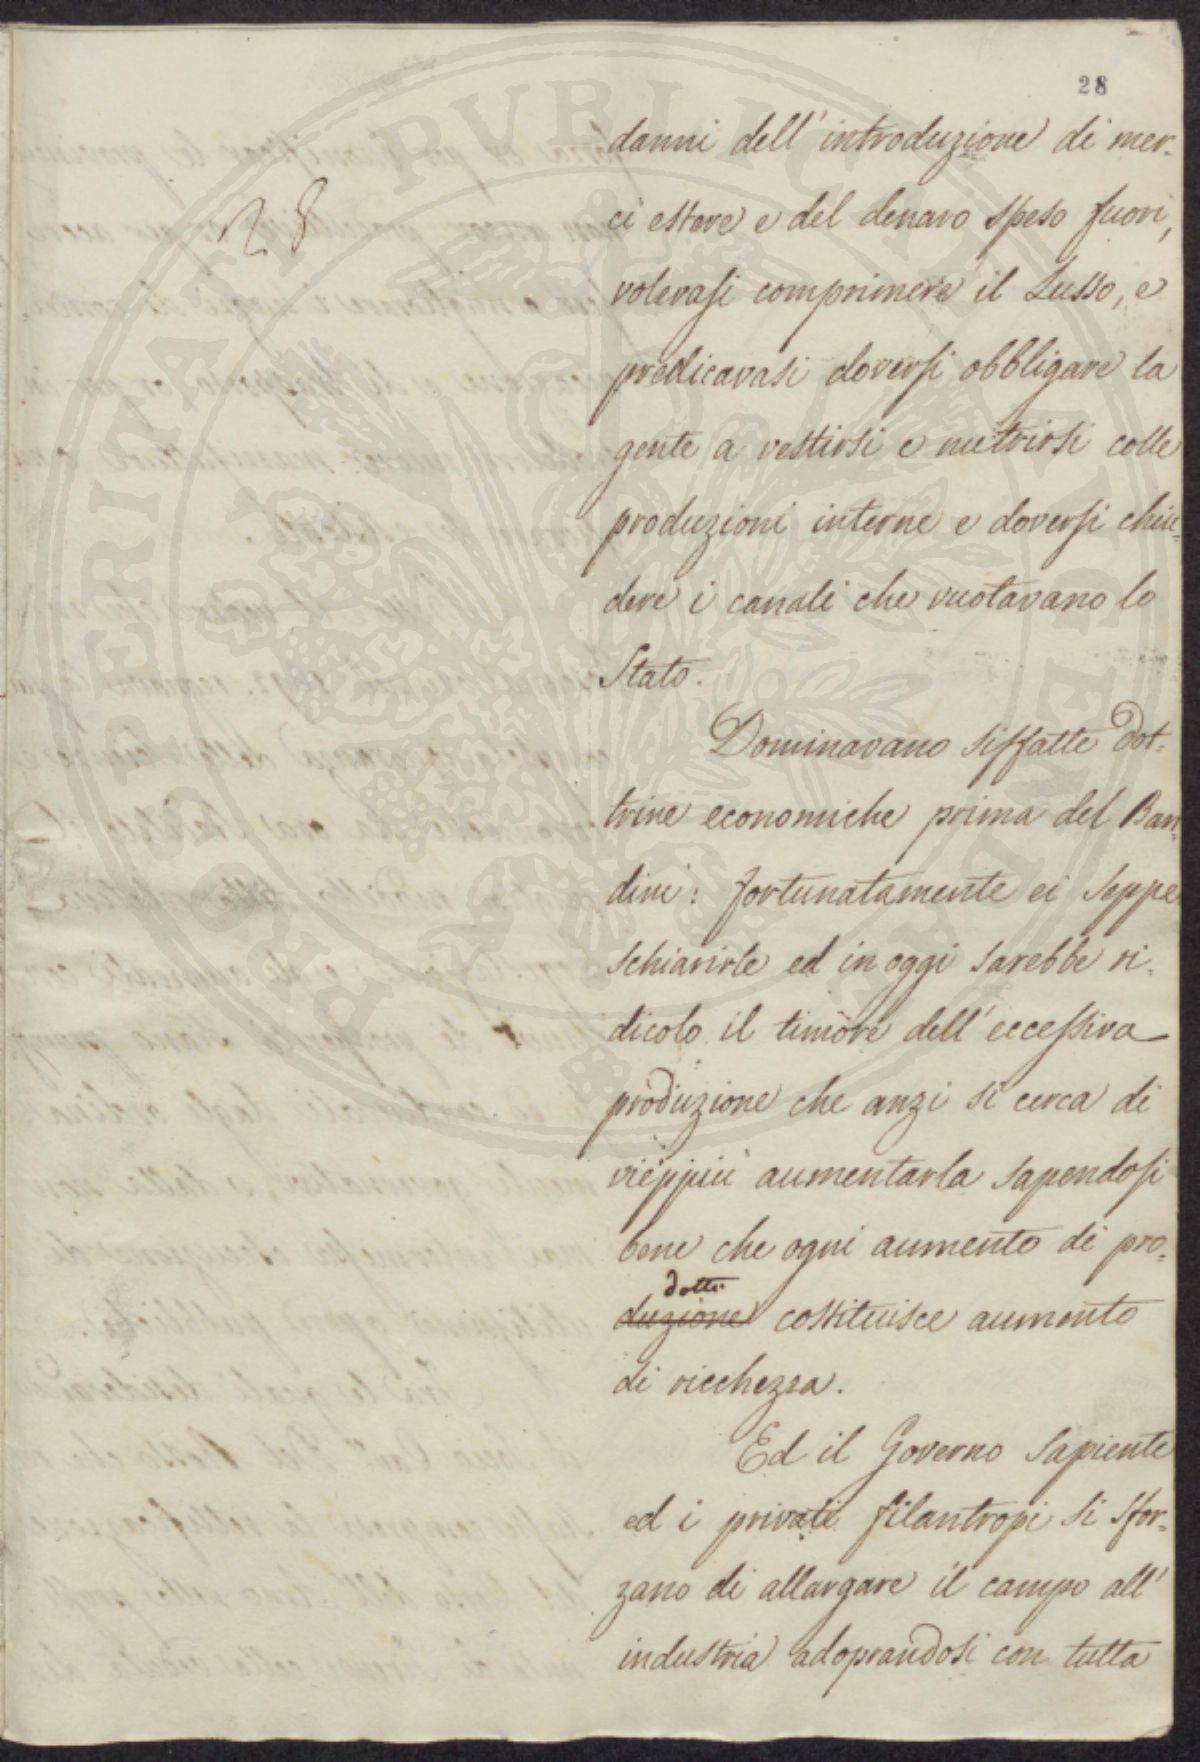 28
28
danni dell' introduzione di mer-
ci estere e del denaro speso fuori,
volevasi comprimere il Lusso, e
predicavasi doversi obbligare la
gente a vestirsi e nutrirsi colle
produzioni interne e doversi chiu=
dere i canali che vuotavano lo
Stato.
Dominavano siffatte dot-
trine economiche prima del Ban-
dini: fortunatamente ei seppe
schiarirle ed in oggi sarebbe ri-
dicolo il timore dell' eccessiva
produzione che anzi si cerca di
vieppiù aumentarla sapendosi
bene che ogni aumento di pro-
dotti
duzione costituisce aumento
di ricchezza.
Ed il Governo sapiente
ed i privati filantropi si sfor-
zano di allargare il campo all'
industria adoprandosi con tutta
PROSPERITATI PVBLICAE